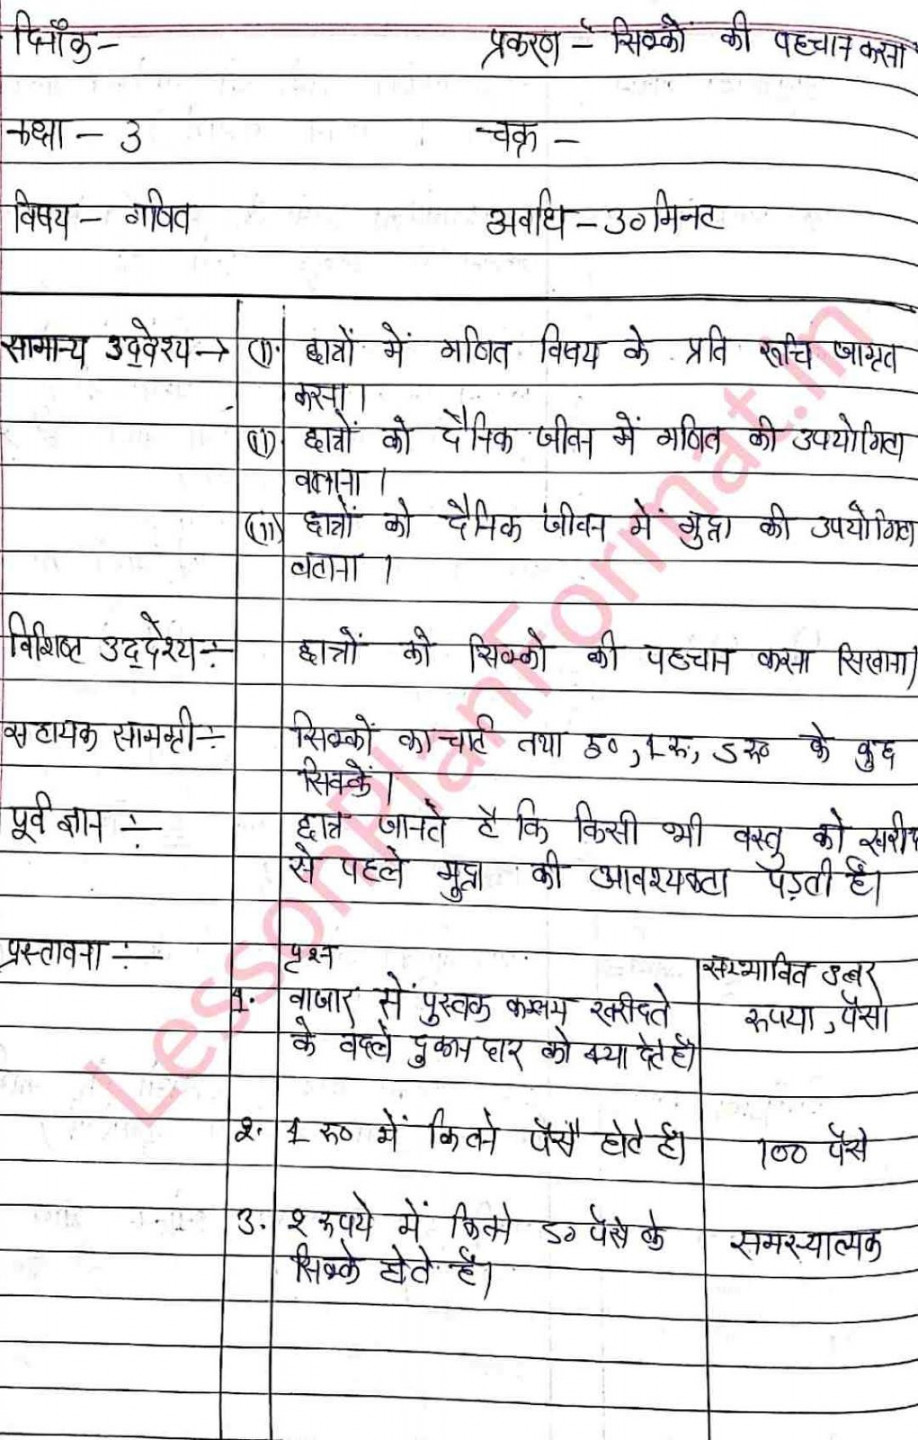 दिनाँक- प्रकरण - सिक्कों की पहचान करना
कक्षा - 3 चक्र -
विषय - गणित अवधि - 30 मिनट
सामान्य उद्देश्य → (i). छात्रों में गणित विषय के प्रति रूचि जागृत
करना।
(ii). छात्रों को दैनिक जीवन में गणित की उपयोगिता
बताना।
(iii) छात्रों को दैनिक जीवन में मुद्रा की उपयोगिता
बताना।
विशिष्ट उद्देश्य :- छात्रों को सिक्कों की पहचान करना सिखाना।
सहायक सामग्री :- सिक्कों का चार्ट तथा 50, 1रु, 5रु० के कुछ
सिक्कें।
पूर्व ज्ञान :- छात्र जानते है कि किसी भी वस्तु को खरीद
से पहले मुद्रा की आवश्यकता पड़ती है।
प्रस्तावना :- प्रश्न सम्भावित उत्तर
1. बाजार से पुस्तक कलम खरीदते रूपया, पैसा
के बदले दुकानदार को क्या देते है।
2. 1 रु० में कितने पैसे होते है। 100 पैसे
3. 2 रूपये में कितने 50 पैसे के समस्यात्मक
सिक्के होते है।
LessonPlanFormat.in